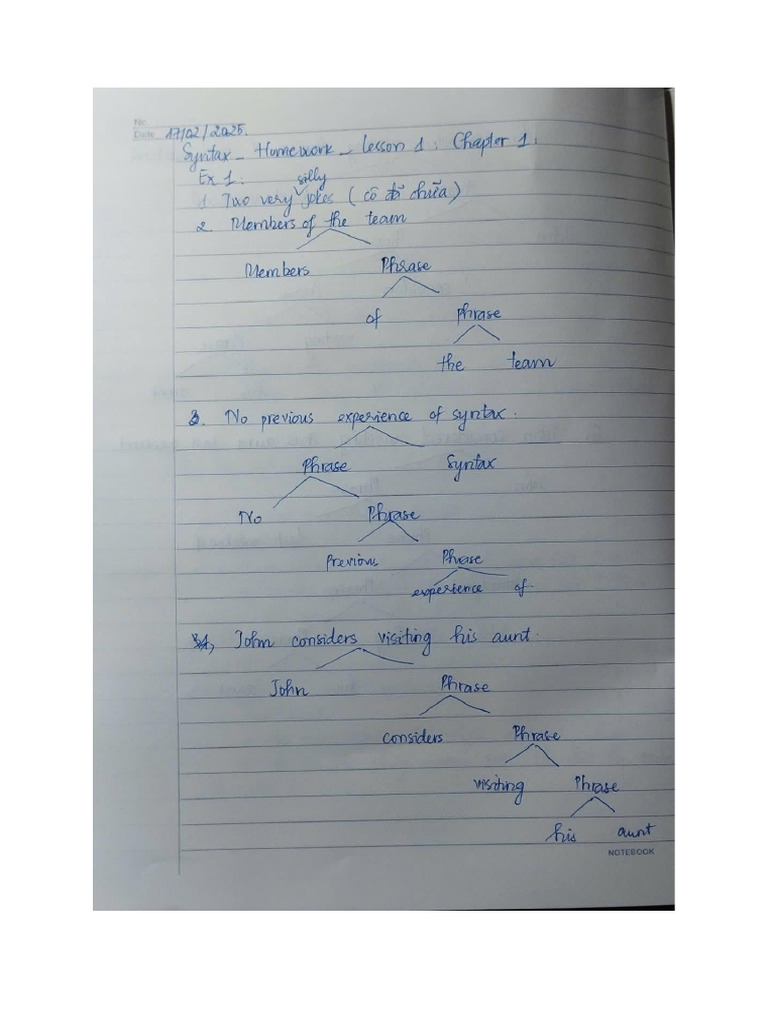 No.
Date 17/02/2025.
Syntax - Homework - Lesson 1: Chapter 1:
Ex 1:
silly
1. Two very jokes (cô đã chữa)
2. Members of the team
Members Phrase
of Phrase
the team
3. No previous experience of syntax.
Phrase Syntax
No Phrase
Previous Phrase
experience of.
4, John considers visiting his aunt.
John Phrase
considers Phrase
visiting Phrase
his aunt
NOTEBOOK